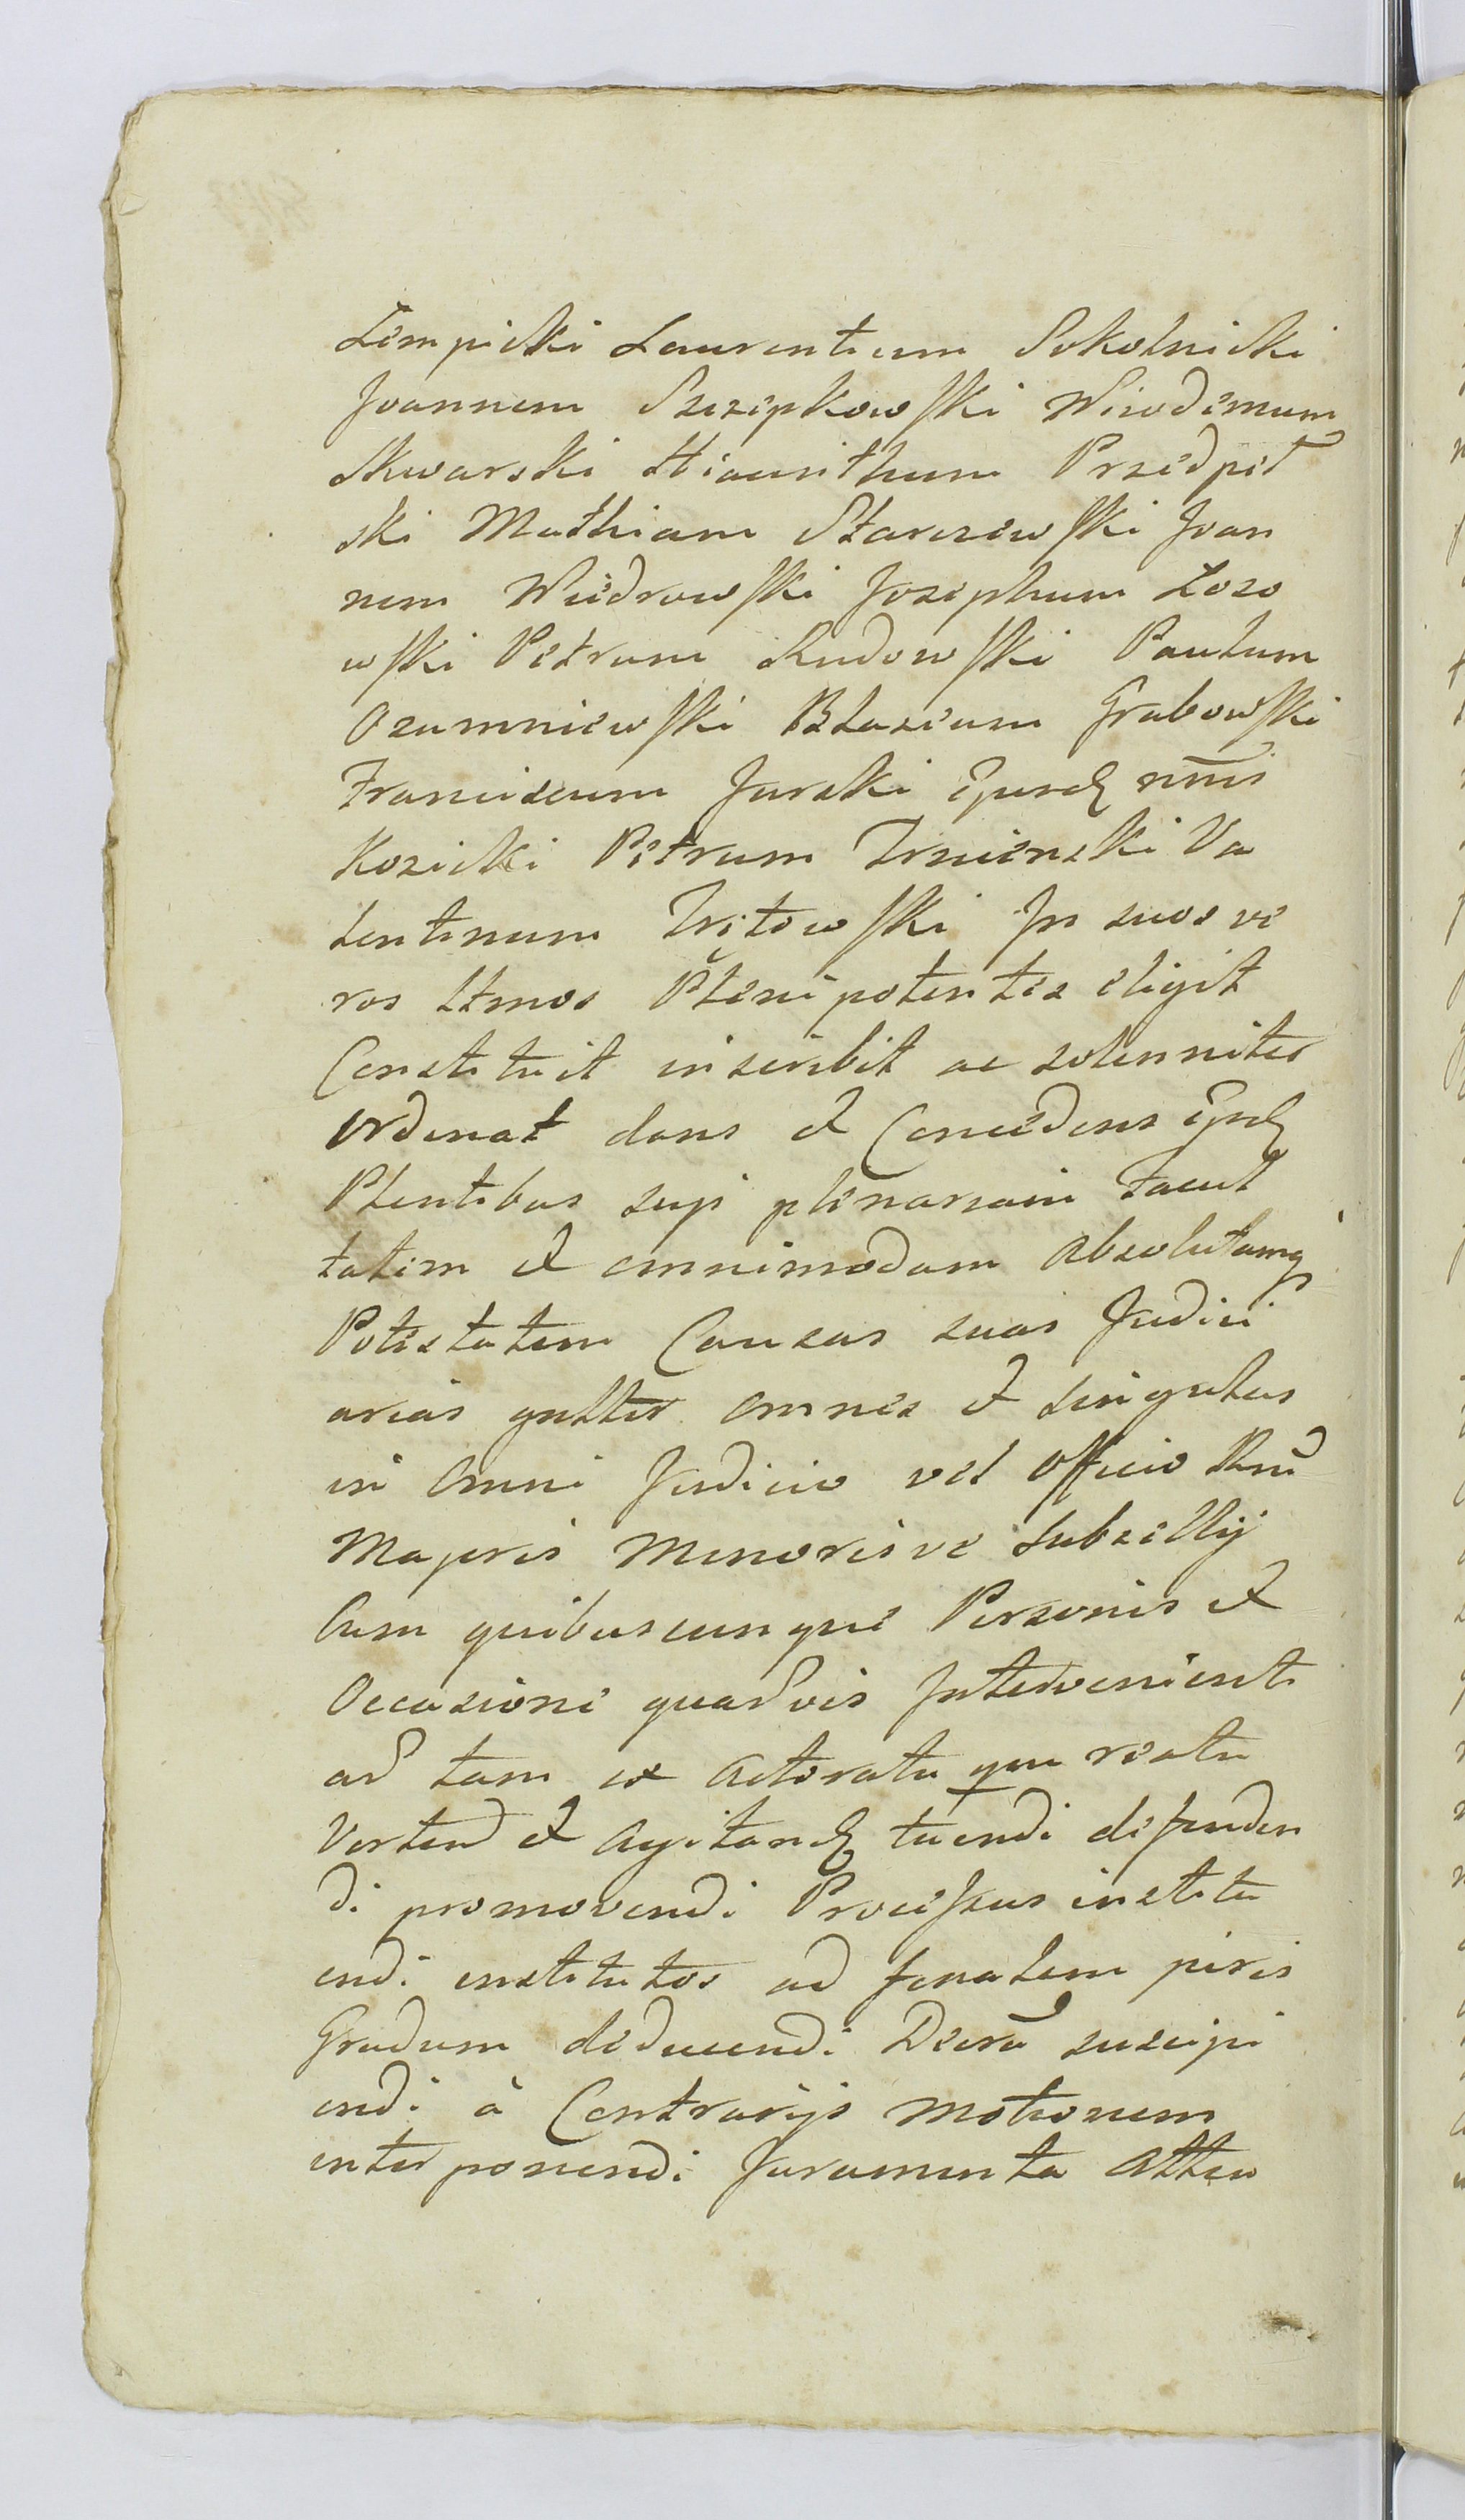 Lempicki Laurentium Sokolnicki
Joannem Szczepkowski Nicodemum
Skwarski Hiacinthum Przedpeł
ski Mathiam Starczewski Joan
nem Wiedrowski Josephum Łozo
wski Petrum Rudowski Paulum
Ozumniewski Blasium Grabowski
Franciscum Jurski
Kosicki Petrum Va
lentinum In suos ve
ros Ltmos Plenipotentes eligit
Constituit inscribit ac solenniter
Ordinat dans et Concedens
Plentibus suis plenariam Facul
tatem et omnimodam Absolutamq
Potestatem Causas suas Judici
arias gnlter omnes et singulas
in omni Judicio vel Officio Rni
Majoris Minorisve Subsellij
Cum quibuscunque Personis et
Occasione quadvis Intervenient
ad tam ex Actoratu qm reatu
Vertend et Agitand tuendi defenden
di promovendi Processus institu
endi institutos ad finalem juris
Gradum deducendi Decra suscipi
endi à Contrarijs Motionem
interponendi Juramenta Atten